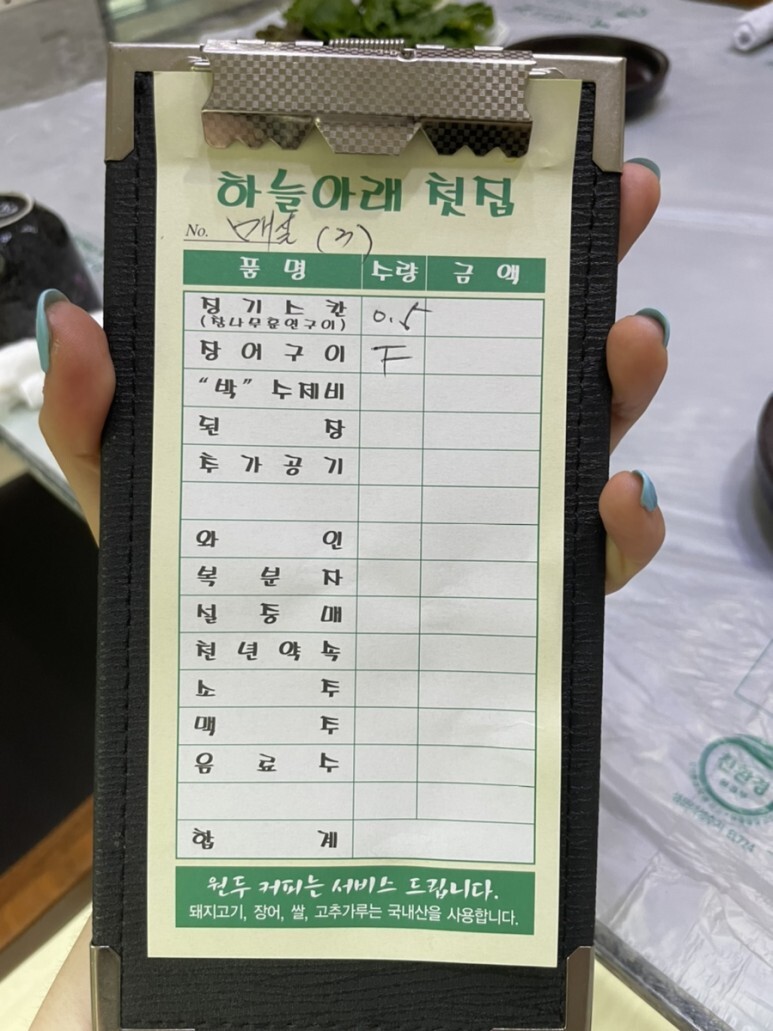 하늘아래 첫집
No. 매실 (3)
품 명 수량 금 액
징기스칸 0.5
(참나무훈연구이)
장어구이 F
“박” 수제비
된장
추가공기
와인
복분자
설중매
천년약속
소주
맥주
음료수
합계
원두 커피는 서비스 드립니다.
돼지고기, 장어, 쌀, 고추가루는 국내산을 사용합니다.
친환경